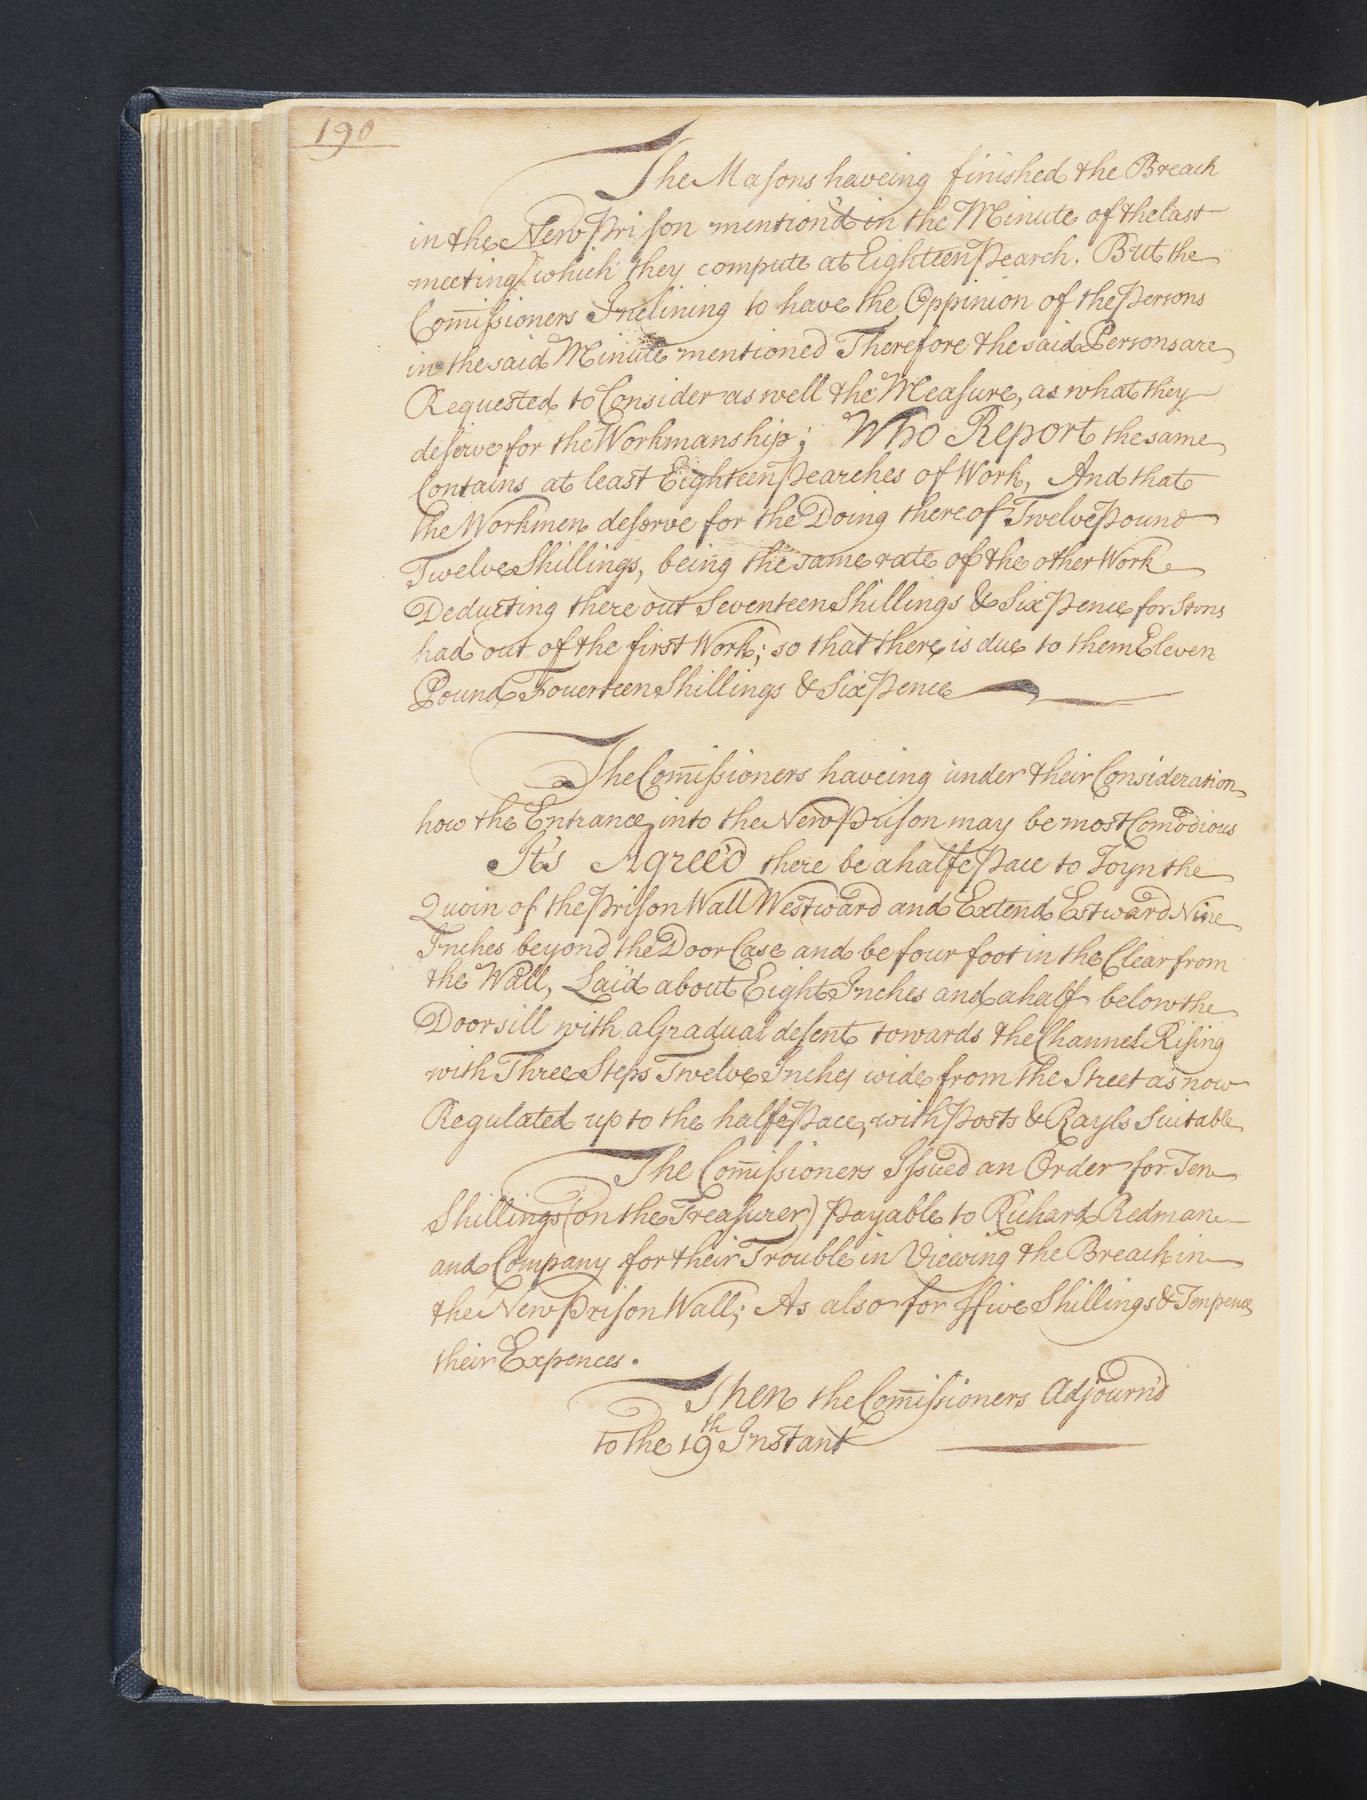 190
The Masons haveing finished the Breach
in the New Prison mention'd in the Minute of the last
meeting which they compute at Eighteen Pearch. But the
Com̄issioners Inclining to have the Oppinion of the Persons
in the said Minute mentioned Therefore the said Persons are
Requested to Consider as well the Measure, as what they
deserve for the Workmanship; Who Report the same
Contains at least Eighteen Pearches of Work, And that
the Workmen deserve for the Doing thereof Twelve Pound
Twelve Shillings, being the same rate of the other Work
Deducting there out Seventeen Shillings & Six Pence for Stons
had out of the first Work; so that there is due to them Eleven
Pound Fouerteen Shillings & Six Pence
The Com̄issioners haveing under their Consideration
how the Entrance into the New Prison may be most Com̄odious
It's Agree'd there be a halfe Pace to Joyn the
Quoin of the Prison Wall Westward and Extend Estward Nine
Inches beyond the Door Case and be four foot in the Clear from
the Wall, Lai'd about Eight Inches and a half below the
Doorsill with a Gradual desent towards the Channel Rising
with Three Steps Twelve Inches wide from the Street as now
Regulated up to the halfe Pace, with Posts & Rayls Suitable
The Com̄issioners Issued an Order for Ten
Shillings (on the Treasurer) Payable to Richard Redman
and Company for their Trouble in Viewing the Breach in
the New Prison Wall; As also for ffive Shillings & Tenpence
their Expences.
Then the Com̄issioners Adjourn'd
to the 19th Instant